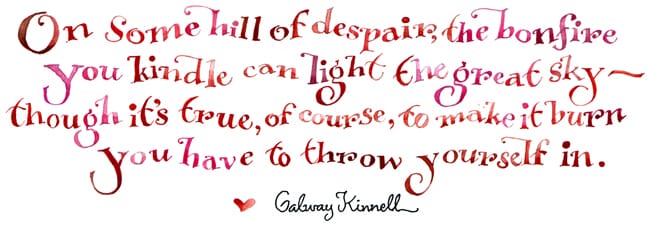 On some hill of despair, the bonfire
you kindle can light the great sky~
though it's true, of course, to make it burn
you have to throw yourself in.
Galway Kinnell